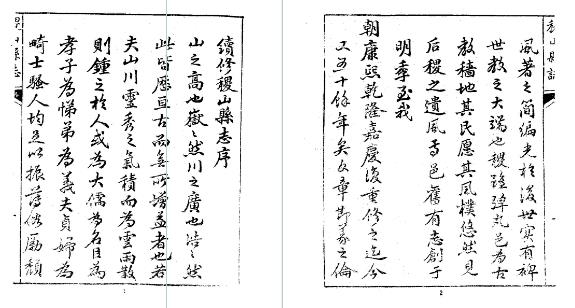 續修稷山縣志序
山之高也嶽嶽然川之廣也浩浩然
此皆歷亘古而無所增益者也若
夫山川靈秀之氣積而為雲雨散
則鍾之於人或為大儒為名臣為
孝子為悌弟為義夫貞婦為
畸士騷人均足以振薄俗勵頹
稷山縣志
1
稷山縣志
風著之簡編光於後世實有裨
世教之大端也稷雖彈丸邑為古
教穡地其民愿其風樸悠然見
后稷之遺風焉邑舊有志創于
明季至我
朝康熙乾隆嘉慶復重修之迄今
五十餘年矣文章節義之倫
2